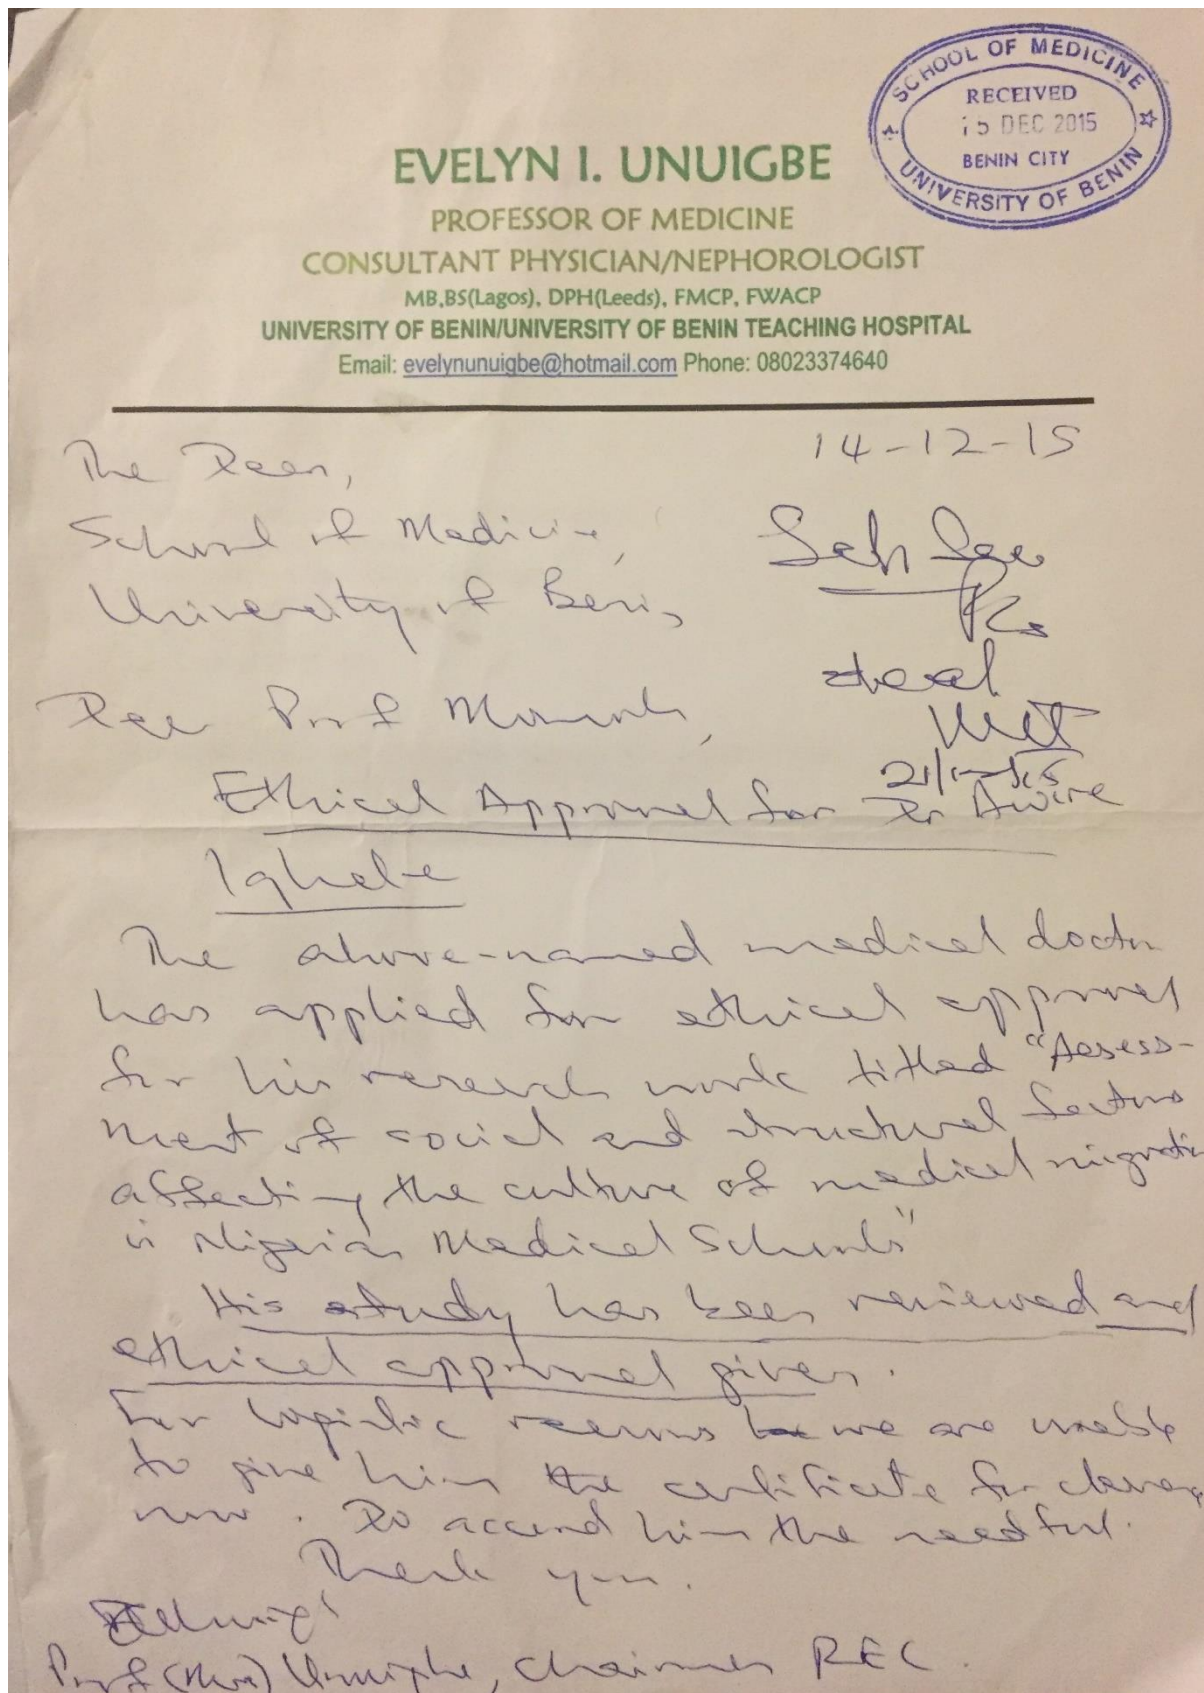 SCHOOL OF MEDICINE
RECEIVED
15 DEC 2015
BENIN CITY
UNIVERSITY OF BENIN
EVELYN I. UNUIGBE
PROFESSOR OF MEDICINE
CONSULTANT PHYSICIAN/NEPHOROLOGIST
MB,BS(Lagos), DPH(Leeds), FMCP, FWACP
UNIVERSITY OF BENIN/UNIVERSITY OF BENIN TEACHING HOSPITAL
Email: evelynunuigbe@hotmail.com Phone: 08023374640
14-12-15
The Dean,
School of Medicine,
University of Benin,
deal
Dear Prof
Ethical Approval for Dr Awire
Ighebe
The above-named medical doctor
has applied for ethical approval
for his research work titled "Assess-
ment of social and structural factors
affecting the culture of medical migration
in Nigerian Medical Schools"
His study has been reviewed and
ethical approval given.
For logistic reasons we are unable
to give him the certificate for clearance
now. Do accord him the needful.
Thank you.
Prof (Mrs) Unuigbe, Chairman REC.